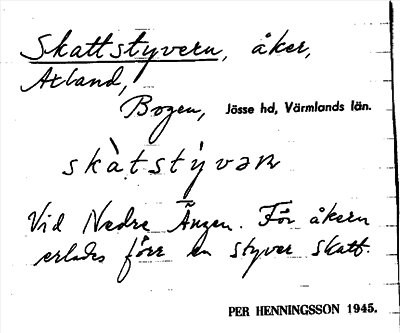 Skattstyvern, åker,
Axland,
Bogen, Jösse hd, Värmlands län.
skàtstývəɴ
Vid Nedre Ängen. För åkern
erlades förr en styver skatt.
PER HENNINGSSON 1945.